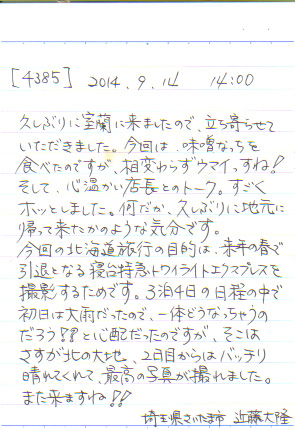 [4385] 2014.9.14 14:00
久しぶりに室蘭に来ましたので、立ち寄らせて
いただきました。今回は、味噌なっちを
食べたのですが、相変わらずウマイっすね!
そして、心温かい店長とのトーク。すごく
ホッとしました。何だか、久しぶりに地元に
帰って来たかのような気分です。
今回の北海道旅行の目的は、来年の春で
引退となる寝台特急トワイライトエクスプレスを
撮影するためです。3泊4日の日程の中で
初日は大雨だったので、一体どうなっちゃうの
だろう!?と心配だったのですが、そこは
さすが北の大地、2日目からはバッチリ
晴れてくれて、最高の写真が撮れました。
また来ますね!!
埼玉県さいたま市 近藤大隆